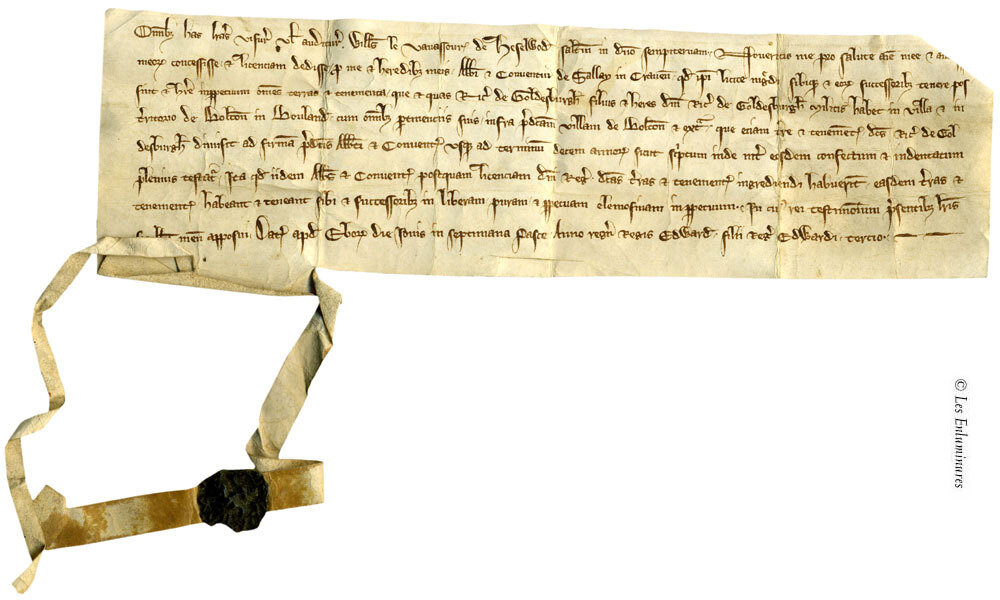 Omib3 has lras visur vl auditur. Willms le Vavassour de Heselwod saltm in dno sempiternam. Noveritis me pro salute aie mee &
meor concessisse & licenciam dedisse p me & heredib3 meis Abbti & Conventui de Sallay in Craven qd ipi licite ingdi sibiq3 & eor successorib3 tenere pos
sint & hre inppetuum omes terras & tenementa que & quas Ricus de Goldesburgh filius & heres dni Rici de Goldesburgh militis habet in villa & in
tritorio de Bolton in Bouland cum omib3 ptinenciis suis infra pdcam villam de Bolton & ext. que eciam tre & tenement dcus Ric de Gol
desburgh dimisit ad firmam pdcis Abbti & Convent usq3 ad terminum decem annor sicut sciptum inde int eosdem confectum & indentatum
plenius testat. Ita qd iidem Abbs & Convent postquam licenciam dni Reg dcas tras & tenement ingrediendi habuerint easdem tras &
tenement habeant & teneant sibi & successorib3 in liberam puram & ppetuam elemosinam in ppetuum. In cuj rei testimonium psentib3 lris
meu apposui. Dat apd Ebor die Jovis in septimana Pasce Anno regni Regis Edward filii Reg Edwardi tercio.
© Les Enluminures